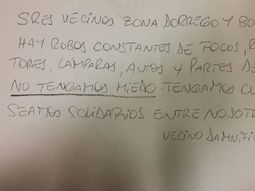 SRES VECINOS ZONA DORREGO Y BO
HAY ROBOS CONSTANTES DE FOCOS,
TORES, LÁMPARAS, AUTOS Y PARTES
NO TENGAMOS MIEDO. TENGAMOS
SEAMOS SOLIDARIOS ENTRE NOSOT
VECINO DAMNIFI